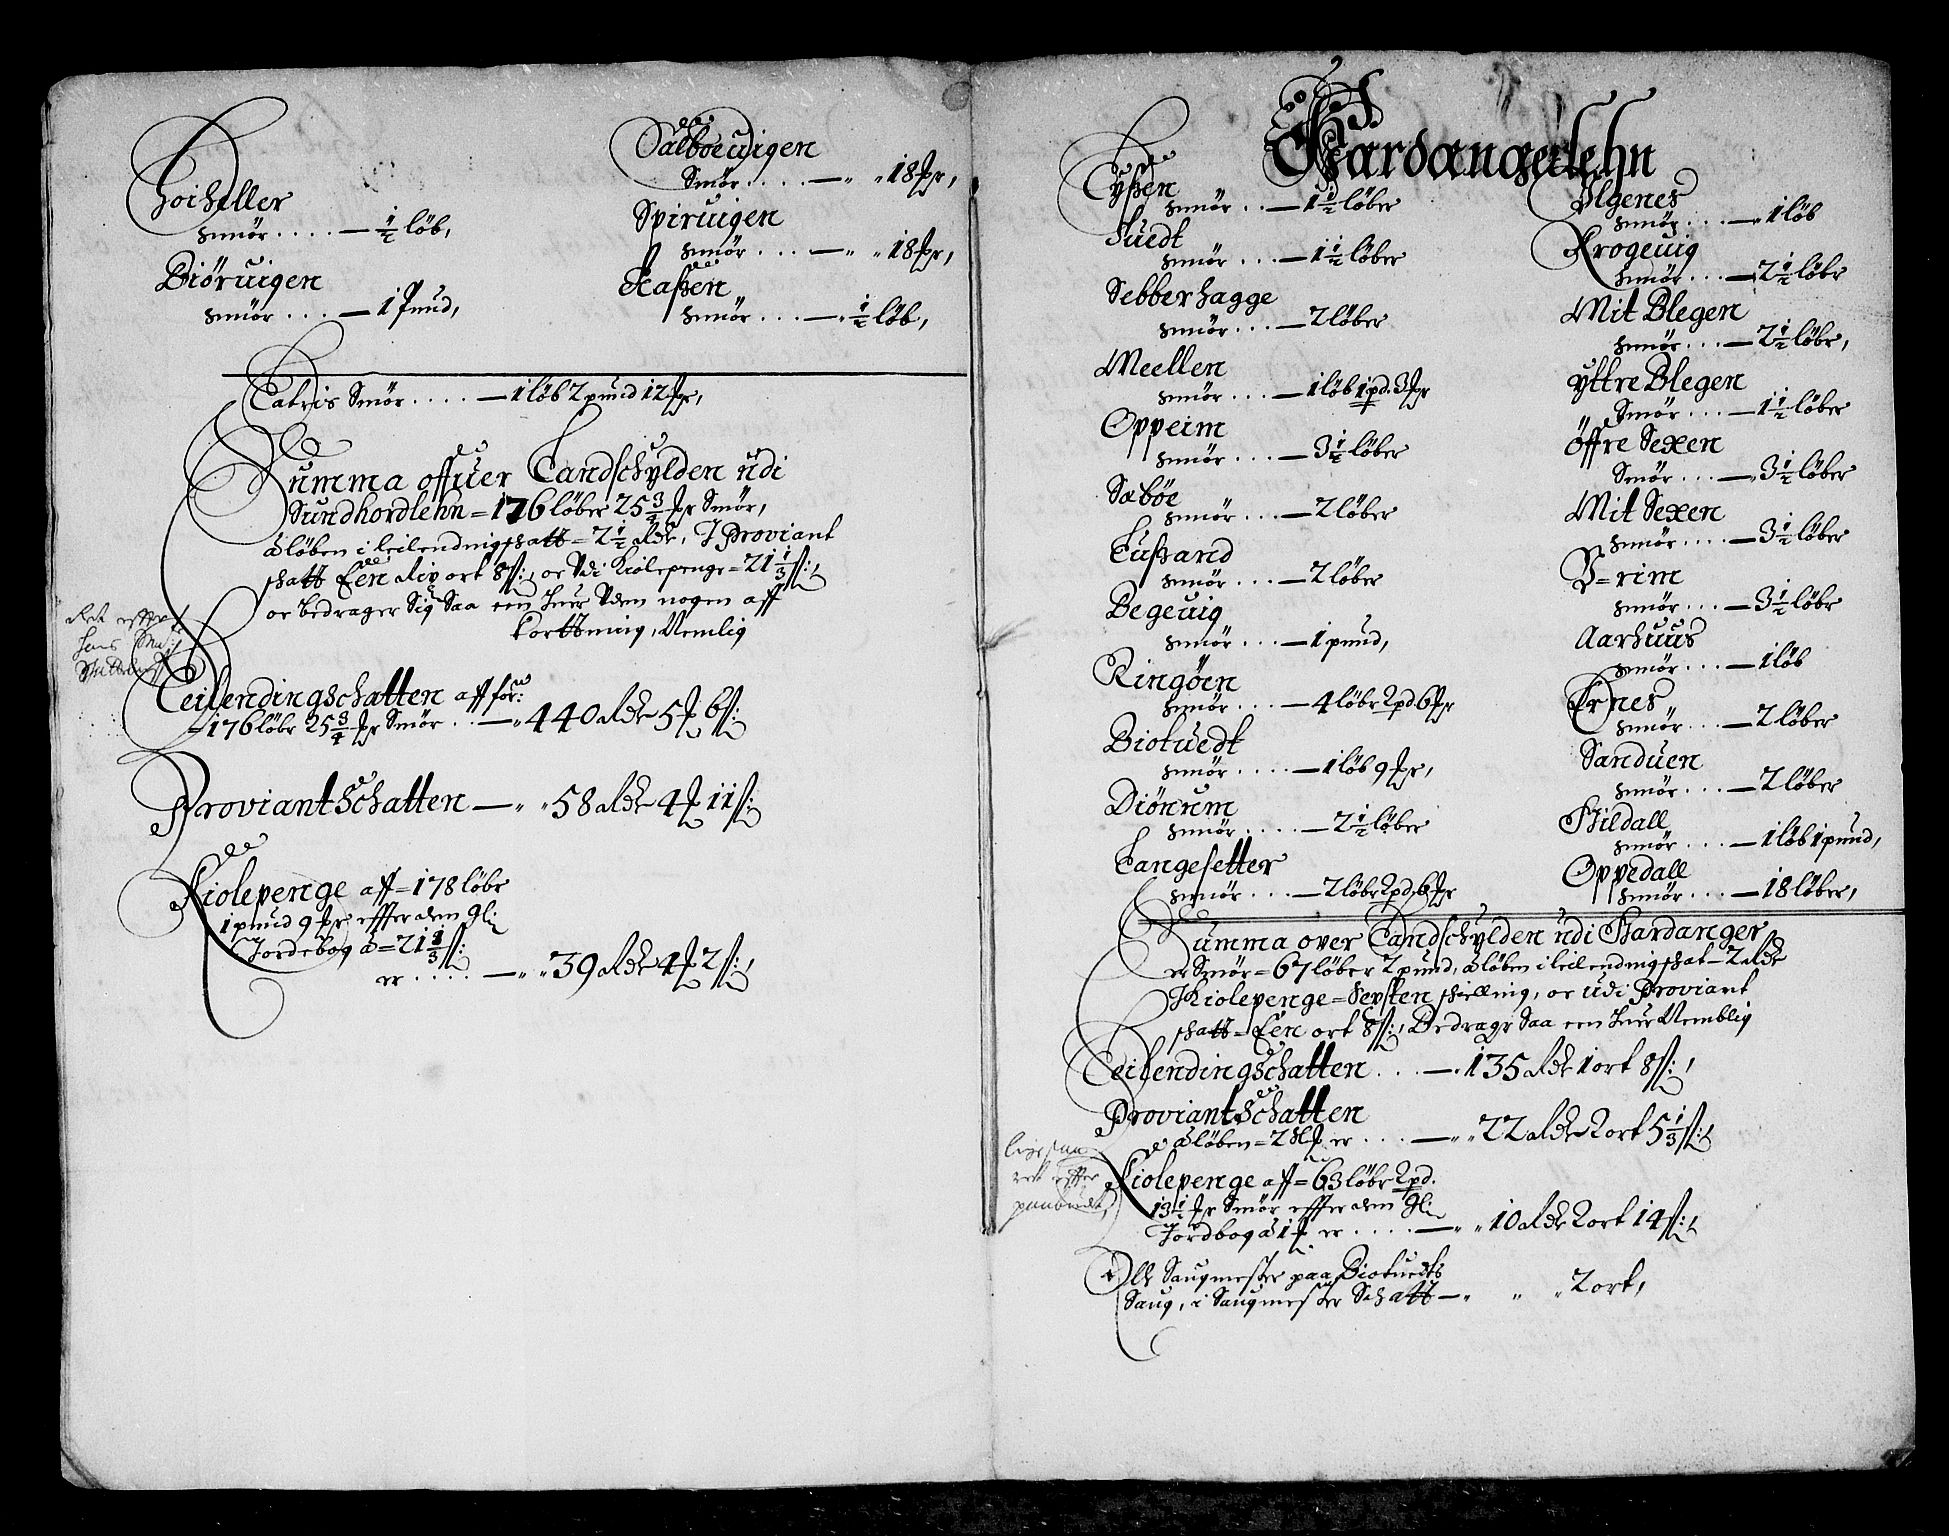 Hoiheller
Smör . . . . — ½ löb,
Biöruigen
Smör . . . — 1 Pund,
Salboeuigen
Smör . . . . — „ „ 18 ℔r,
Spiruigen
Smör . . . — „ „ 18 ℔r,
Smör . . . — „ ½ löb,
Lateris Smör . . . . — 1 löb 2 pund 12 ℔r,
Summa offuer Landschylden udi
Sundhordlehn = 176 löber 25 ¾ ℔r Smör,
â löben i leilendingschatt = 2 ½ Rdr, J Proviant
schatt Een Rix ort 8 ß:, oc Vdi Kiolepenge = 21 ⅓ ß:,
oc bedrager Sig Saa een huer Vden nogen aff
Kortning, Nemlig
Leilendingschatten aff for:
= 176 löbr 25 ¾ ℔r Smör . . — „ 440 Rdr 5 ℔ 6 ß:
Proviantschatten — „ „ 58 Rdr 4 ℔ 11 ß:
Kiolepenge aff = 178 löbr
1 pund 9 ℔r effter den gl:
Jordebog â = 21 ⅓ ß:
er . . . . . — „ „ 39 Rdr 4 ℔ 2 ß:,
Hardangerlehn
Lyßen
Smör . . — 1 ½ löber
Tuedt
Smör . . . — 1 ½ löber
Sebberhagge
Smör . . . — 2 löber
Meellen
Smör . . . — 1 löb 1 pd. 3 ℔r
Oppeim
Smör . . . — 3 ½ löber
Sæböe
Smör . . . — 2 löber
Lußand
Smör . . . — 2 löber
Begeuig
Smör . . . — 1 pund,
Ringöen
Smör . . . — 4 löbr 2 pd 6 ℔r
Biotuedt
Smör . . . . — 1 löb 9 ℔r,
Diönum
Smör . . . . — 2 ½ löber
Langesetter
Smör . . . — 2 löbr 2 pd 6 ℔r
Algenes
Smör . . . . — „ 1 löb
Krogeuig
Smör . . . — 2 ½ löbr
Mit Blegen
Smör . . . — 2 ½ löbr,
yttre Blegen
Smör . . . — 1 ½ löber
öffre Sexen
Smör . . . — 3 ½ löber
Mit Sexen
Smör . . . — 3 ½ löber
Smör . . . — 3 ½ löbr
Aarhuus
Smör . . . — 1 löb
Ernes
Smör . . . — 2 löber
Sanduen
Smör . . . — 2 löber
Hildall
Smör . . . — 1 löb 1 pund,
Oppedall
Smör . . . — 18 löber,
Summa over Landschylden udi Hardanger
er Smör = 67 löber 2 pund, â löben i leilendingschat = 2 Rdr
J Kiolepenge = Sexsten schelling, oc udi Proviant
schatt = Een ort 8 ß:, Bedragr Saa een huer Nemblig
Leilendingschatten . . . — „ 135 Rdr 1 ort 8 ß:,
Proviantschatten
â löben = 2 er . . . . — „ „ 22 Rdr 2 ort 5 ⅓ ß:,
ligesaa
ret effter
Kiolepenge aff = 63 löbr 2 pd.
13 ½ ℔r Smör effter den gl:
Jordbog â 1 ℔ er . . . . — „ „ 10 Rdr 2 ort 14 ß:,
Oll Saugmester paa Biotuedts
Saug, i Saugmester Schatt — „ „ „ 2 ort,